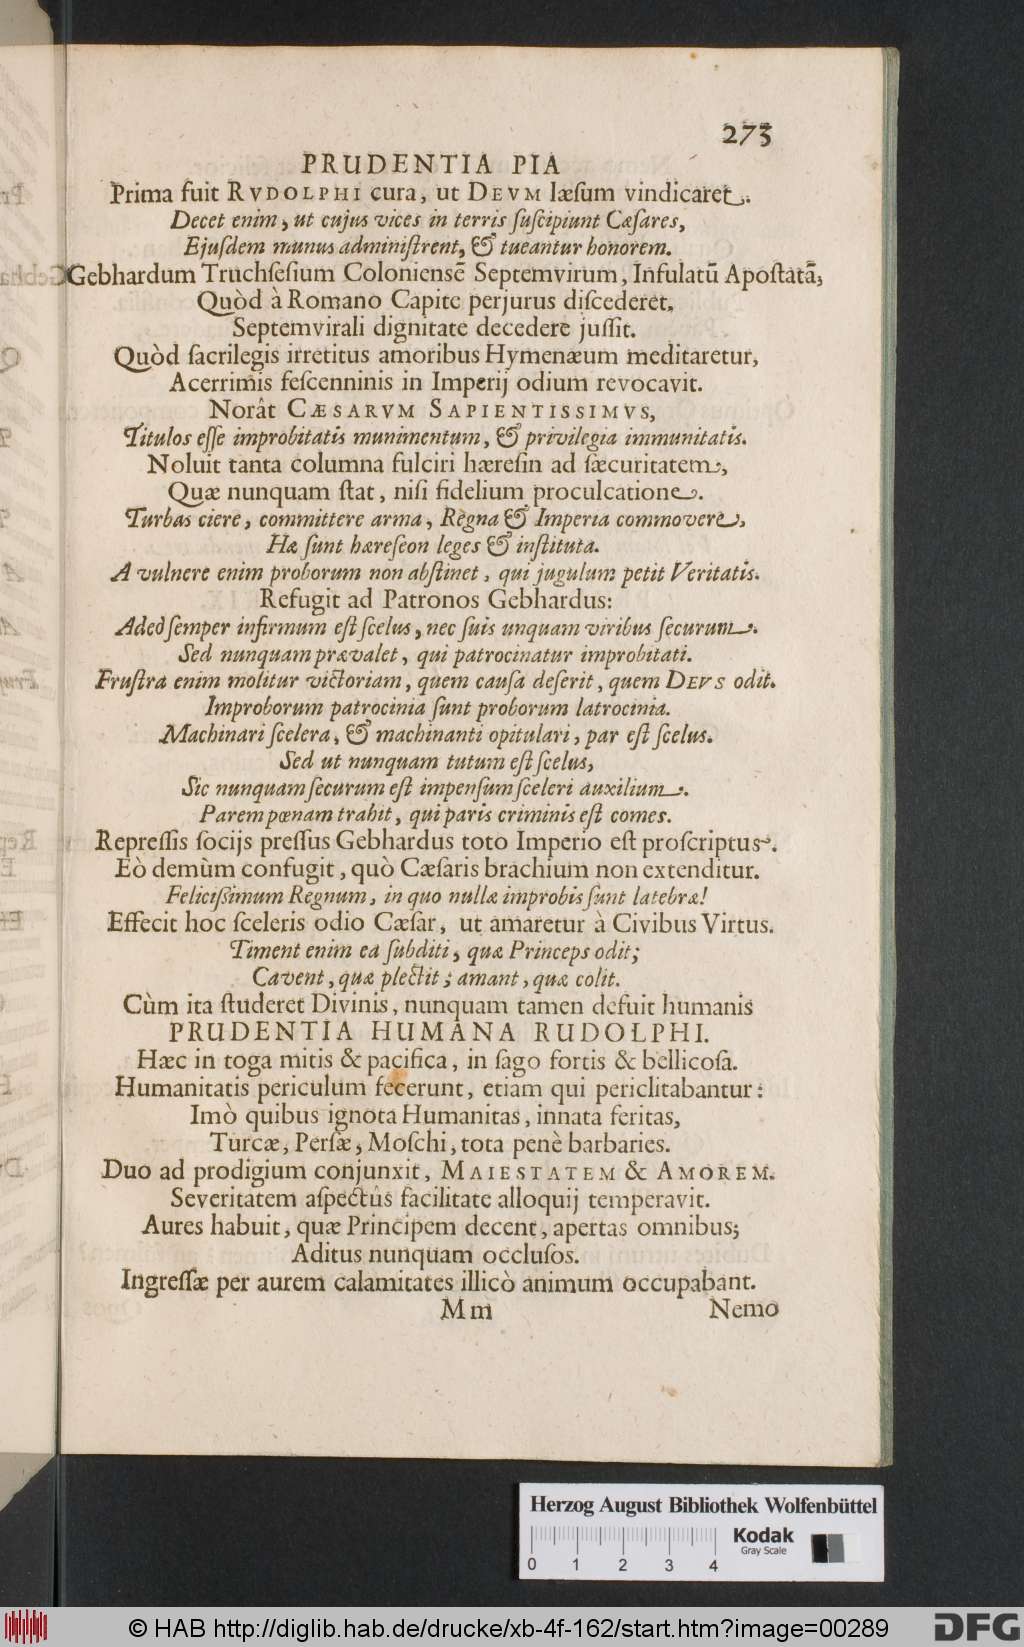 273
PRUDENTIA PIA
Prima fuit RVDOLPHI cura, ut DEVM læsum vindicaret.
Decet enim, ut cujus vices in terris suscipiunt Cæsares,
Ejusdem munus administrent, & tueantur honorem.
Gebhardum Truchsesium Coloniensē Septemvirum, Infulatū Apostatā,
Quòd à Romano Capite perjurus discederet,
Septemvirali dignitate decedere jussit.
Quòd sacrilegis irretitus amoribus Hymenæum meditaretur,
Acerrimis fescenninis in Imperij odium revocavit.
Norât CÆSARVM SAPIENTISSIMVS,
Titulos esse improbitatis munimentum, & privilegia immunitatis.
Noluit tanta columna fulciri hæresin ad sæcuritatem,
Quæ nunquam stat, nisi fidelium proculcatione.
Turbas ciere, committere arma, Regna & Imperia commovere,
Hæ sunt hæreseon leges & instituta.
A vulnere enim proborum non abstinet, qui jugulum petit Veritatis.
Refugit ad Patronos Gebhardus:
Adeò semper infirmum est scelus, nec suis unquam viribus securum.
Sed nunquam prævalet, qui patrocinatur improbitati.
Frustra enim molitur victoriam, quem causa deserit, quem DEVS odit.
Improborum patrocinia sunt proborum latrocinia.
Machinari scelera, & machinanti opitulari, par est scelus.
Sed ut nunquam tutum est scelus,
Sic nunquam securum est impensum sceleri auxilium.
Parem pœnam trahit, qui paris criminis est comes.
Repressis socijs pressus Gebhardus toto Imperio est proscriptus.
Eò demùm confugit, quò Cæsaris brachium non extenditur.
Felicissimum Regnum, in quo nullæ improbis sunt latebræ!
Effecit hoc sceleris odio Cæsar, ut amaretur à Civibus Virtus.
Timent enim ea subditi, quæ Princeps odit;
Cavent, quæ plectit; amant, quæ colit.
Cùm ita studeret Divinis, nunquam tamen defuit humanis
PRUDENTIA HUMANA RUDOLPHI.
Hæc in toga mitis & pacifica, in sago fortis & bellicosa.
Humanitatis periculum fecerunt, etiam qui periclitabantur:
Imò quibus ignota Humanitas, innata feritas,
Turcæ, Persæ, Moschi, tota penè barbaries.
Duo ad prodigium conjunxit, MAIESTATEM & AMOREM.
Severitatem aspectûs facilitate alloquij temperavit.
Aures habuit, quæ Principem decent, apertas omnibus;
Aditus nunquam occlusos.
Ingressæ per aurem calamitates illicò animum occupabant.
Mm Nemo
Herzog August Bibliothek Wolfenbüttel
0 1 2 3 4
Kodak
Gray Scale
© HAB http://diglib.hab.de/drucke/xb-4f-162/start.htm?image=00289
DFG